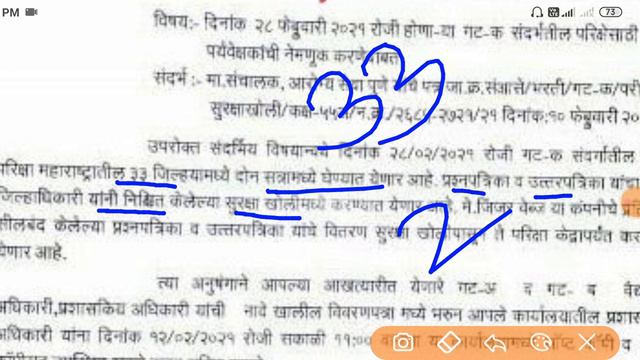 PM 73
विषय:- दिनांक २८ फेब्रुवारी २०२१ रोजी होणा-या गट-क संदर्भतील परिक्षेसाठी
पर्यवेक्षकांची नेमणूक करणेबाबत
३३
संदर्भ :- मा.संचालक, आरोग्य सेवा पुणे यांचे पत्र जा.क्र.संआसे/भरती/गट-क/परी
सुरक्षाखोली/कक्ष-५५ /न.क्र./२६८५-२७२१/२१ दिनांक:१० फेब्रुवारी २०
उपरोक्त संदर्भिय विषयान्वये दिनांक २८/०२/२०२१ रोजी गट-क संवर्गातील
परिक्षा महाराष्ट्रातील ३३ जिल्हयामध्ये दोन सत्रामध्ये घेण्यात येणार आहे. प्रश्नपत्रिका व उत्तरपत्रिका यांचा
जिल्हाधिकारी यांनी निश्चित केलेल्या सुरक्षा खोलीमध्ये करण्यात येणार आहे. मे.जिंजर वेब्ज या कंपनीचे
सीलबंद केलेल्या प्रश्नपत्रिका व उत्तरपत्रिका यांचे वितरण सुरक्षा खोलीपासून ते परिक्षा केंद्रापर्यंत कर
येणार आहे.
त्या अनुषंगाने आपल्या आखत्यारीत येणारे गट-अ व गट- ब
अधिकारी,प्रशासकिय अधिकारी यांची नावे खालील विवरणपत्रा मध्ये भरुन आपले कार्यालयातील प्रशास
अधिकारी यांना दिनांक १२/०२/२०२१ रोजी सकाळी ११:००